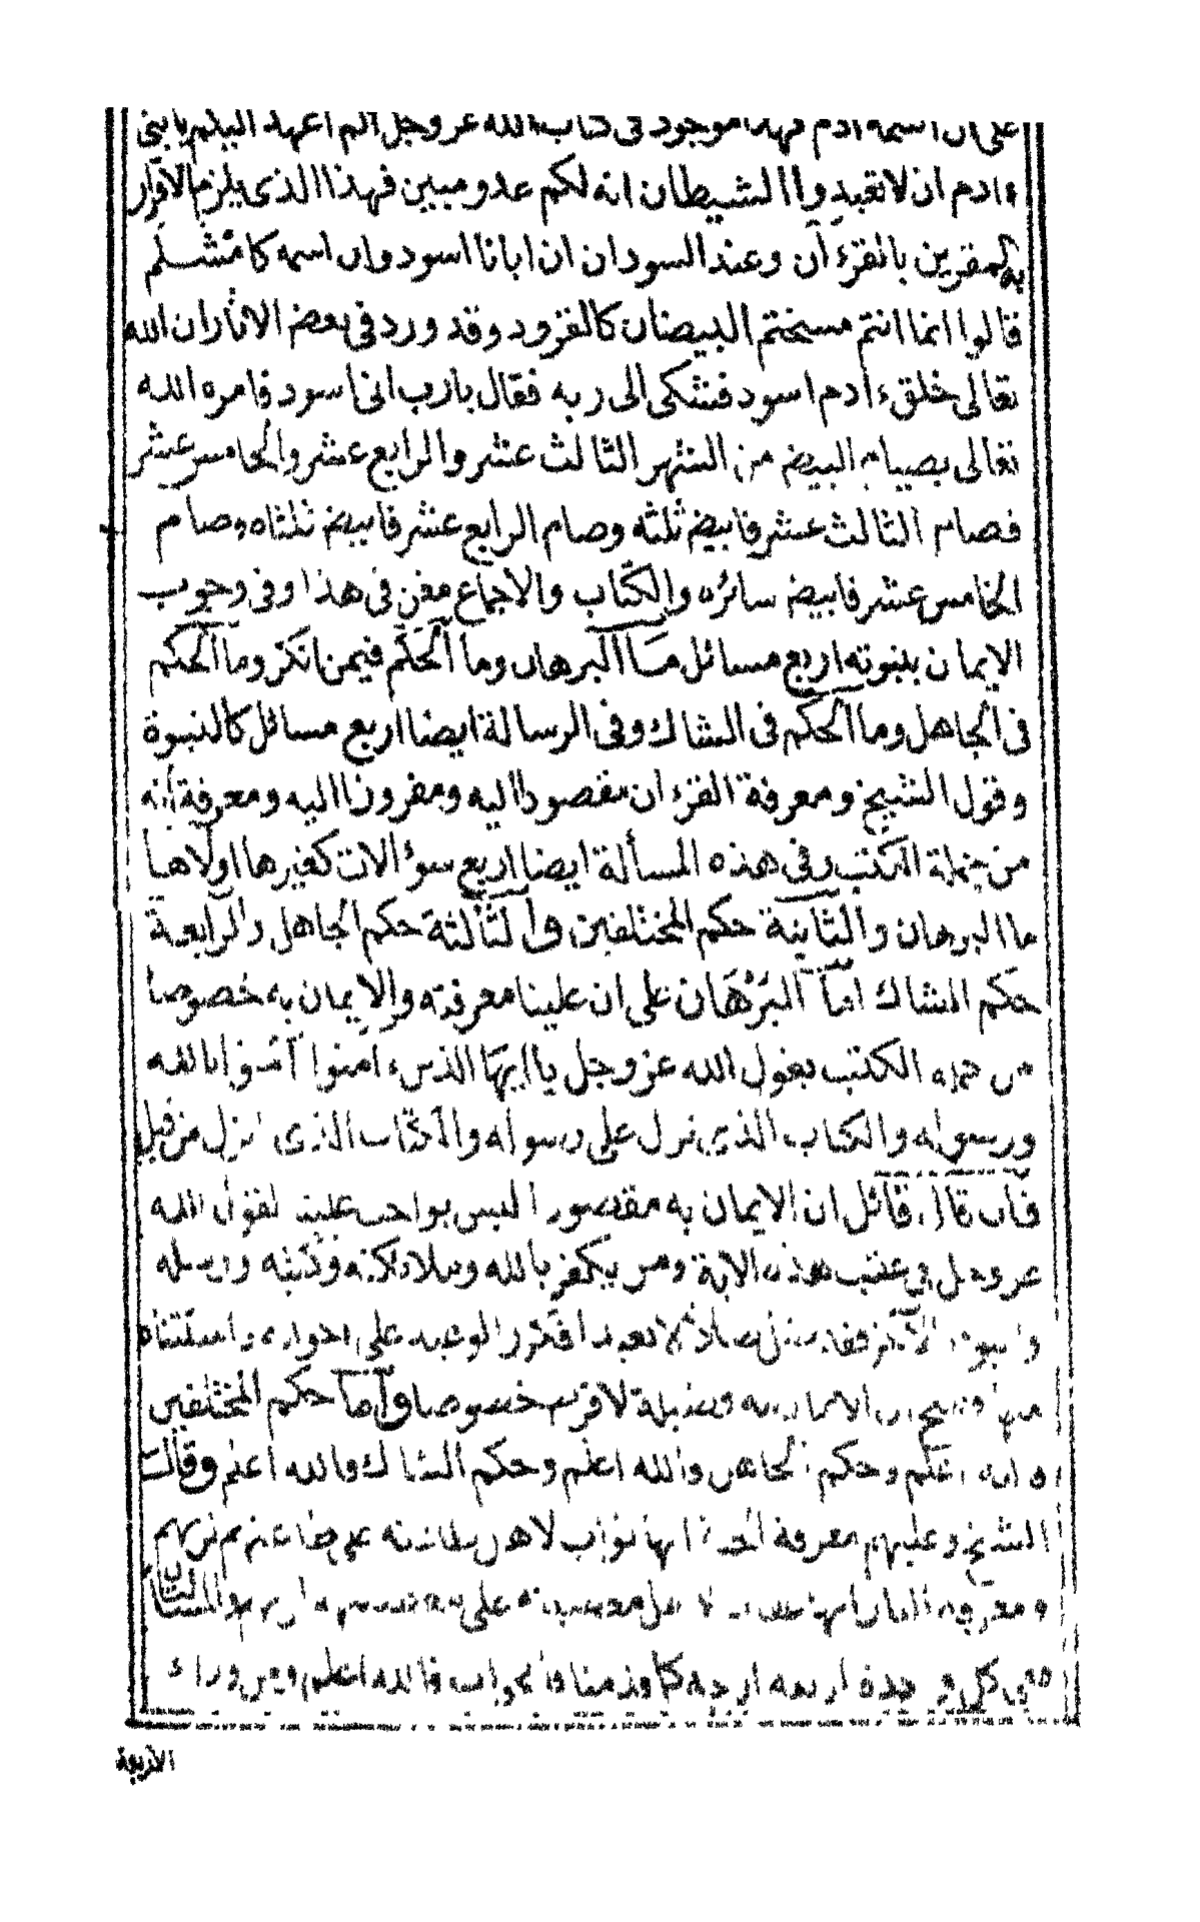 على ان اسمه ءادم فهذا موجود في كتاب الله عز وجل الم اعهد اليكم يا بني
ءادم ان لا تعبدوا الشيطان انه لكم عدو مبين فهذا الذى يلزم الاقرار
به المقرين بالقرءان وعند السودان ان ابانا اسود وان اسمه كامشلم
قالوا انما انتم مسختم البيضان كالقرود وقد ورد في بعض الاثار ان الله
تعالى خلق ءادم اسود فشكى الى ربه فقال يا رب انى اسود فامره الله
تعالى بصيام البيض من الشهر الثالث عشر والرابع عشر والخامس عشر
فصام الثالث عشر فابيض ثلثه وصام الرابع عشر فابيض ثلثاه وصام
الخامس عشر فابيض سائره والكتاب والاجماع مغن في هذا وفى وجوب
الايمان بنبوته اربع مسائل ما البرهان وما الحكم فيمن انكر وما الحكم
في الجاهل وما الحكم في الشاك وفى الرسالة ايضا اربع مسائل كالنبوة
وقول الشيخ ومعرفة القرءان مقصودا اليه ومفروزا اليه ومعرفة انه
من جملة الكتب وفى هذه المسألة ايضا اربع سؤالات كغيرها اولاها
ما البرهان والثانية حكم المختلفين والثالثة حكم الجاهل والرابعة
حكم الشاك اما البرهان على ان علينا معرفته والايمان به خصوصا
من جملة الكتب بقول الله عز وجل يا ايها الذين ءامنوا ءامنوا بالله
ورسوله والكتاب الذى نزل على رسوله والكتاب الذى انزل من قبل
فان قال قائل ان الايمان به مقصورا ليس بواجب علينا لقول الله
عز وجل في عقب هذه الاية ومن يكفر بالله وملائكته وكتبه ورسله
واليوم الاخر فقد ضل ضلالا بعيدا فكرر الوعيد على
الايمان به وجملة لا خصوصا واما حكم المختلفين
اعلم وحكم الجاهل والله اعلم وحكم الشاك والله اعلم وقال
الشيخ وعليهم معرفة الجنة انها ثواب لاهل طاعته
ومعرفة النار انها لاهل معصيته على
وفى كل واحدة اربعة اوجه كما قدمنا والجواب فالله اعلم ومن وراء
الاربعة